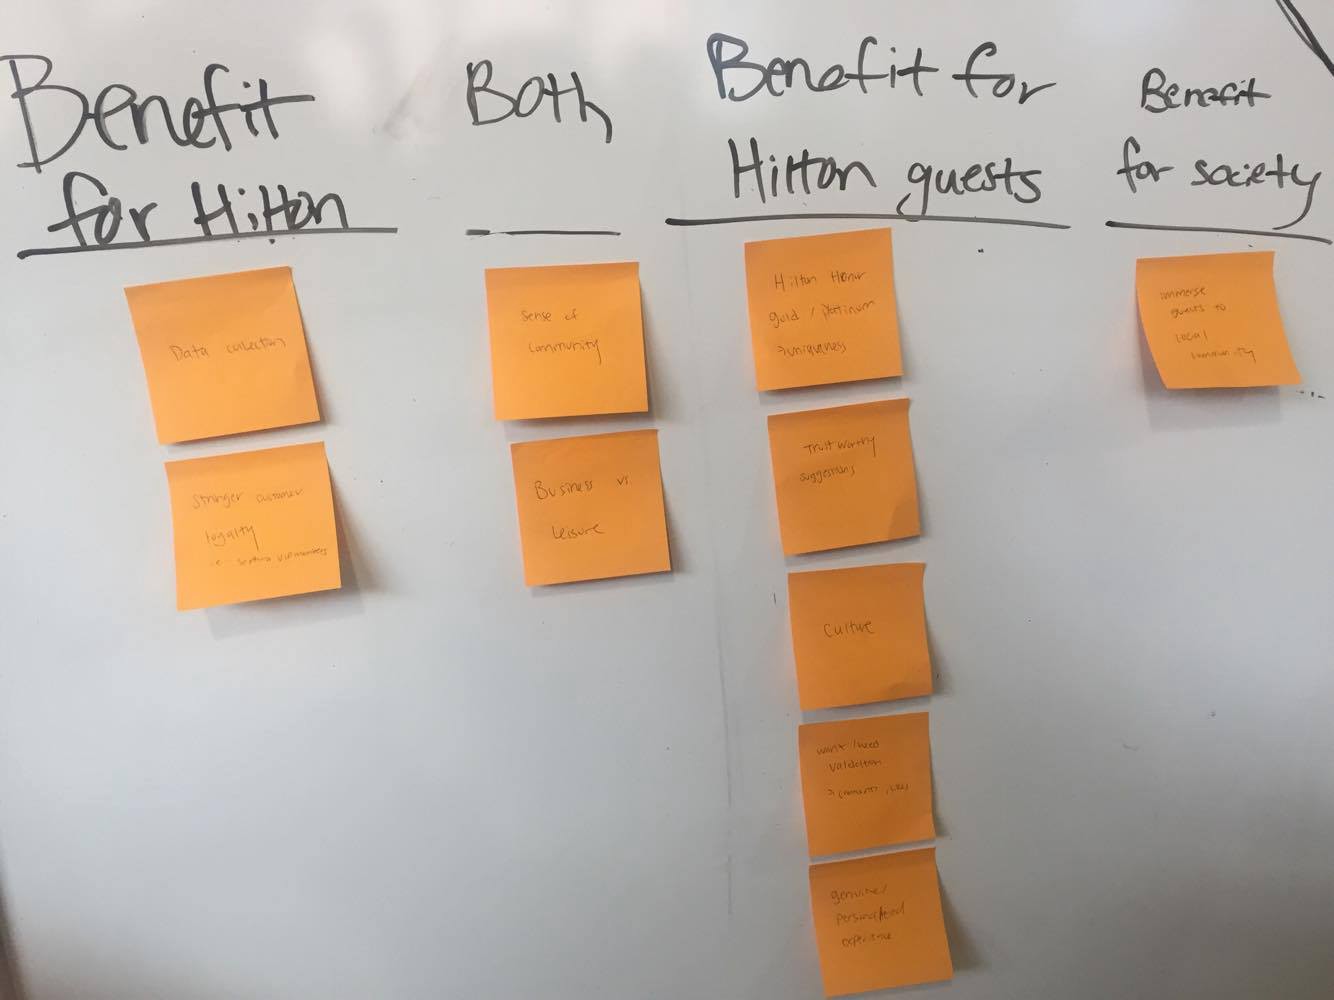 Benefit
for Hilton
Data collection
Stronger customer
loyalty
i.e.
Both
Sense of
community
Business vs.
Leisure
Benefit for
Hilton guests
Hilton Honor
gold / platinum
>uniqueness
Trustworthy
suggestions
Culture
want / need
validation
> comments, likes
genuine/
personalized
experience
Benefit
for society
immerse
guests to
local
community